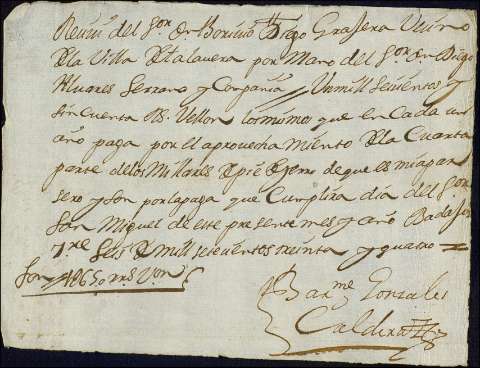 Recivi del Sor. Dn. Grassera Vecino
de la Villa de talavera por Mano del Sor. Dn. Diego
Alvares Serrano y Compañia // Un mill seiscientos y
sincuenta Rs. Vellon los mismos que en Cada un
año paga por el aprovecha miento de la Cuarta
parte de los Millares de de que es mi apar
sero y son por la paga que Cumplira dia del Sor.
San Miguel de este presente mes y año Badajos
7re. Seis de mill setecientos treinta y quatro =
Son // 1650 rrs. Von.
Barme. Gonzales
Caldera